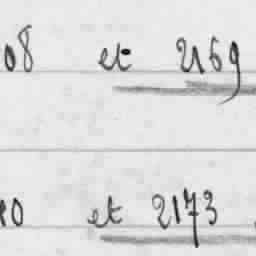 08 et 2169
10 et 2173